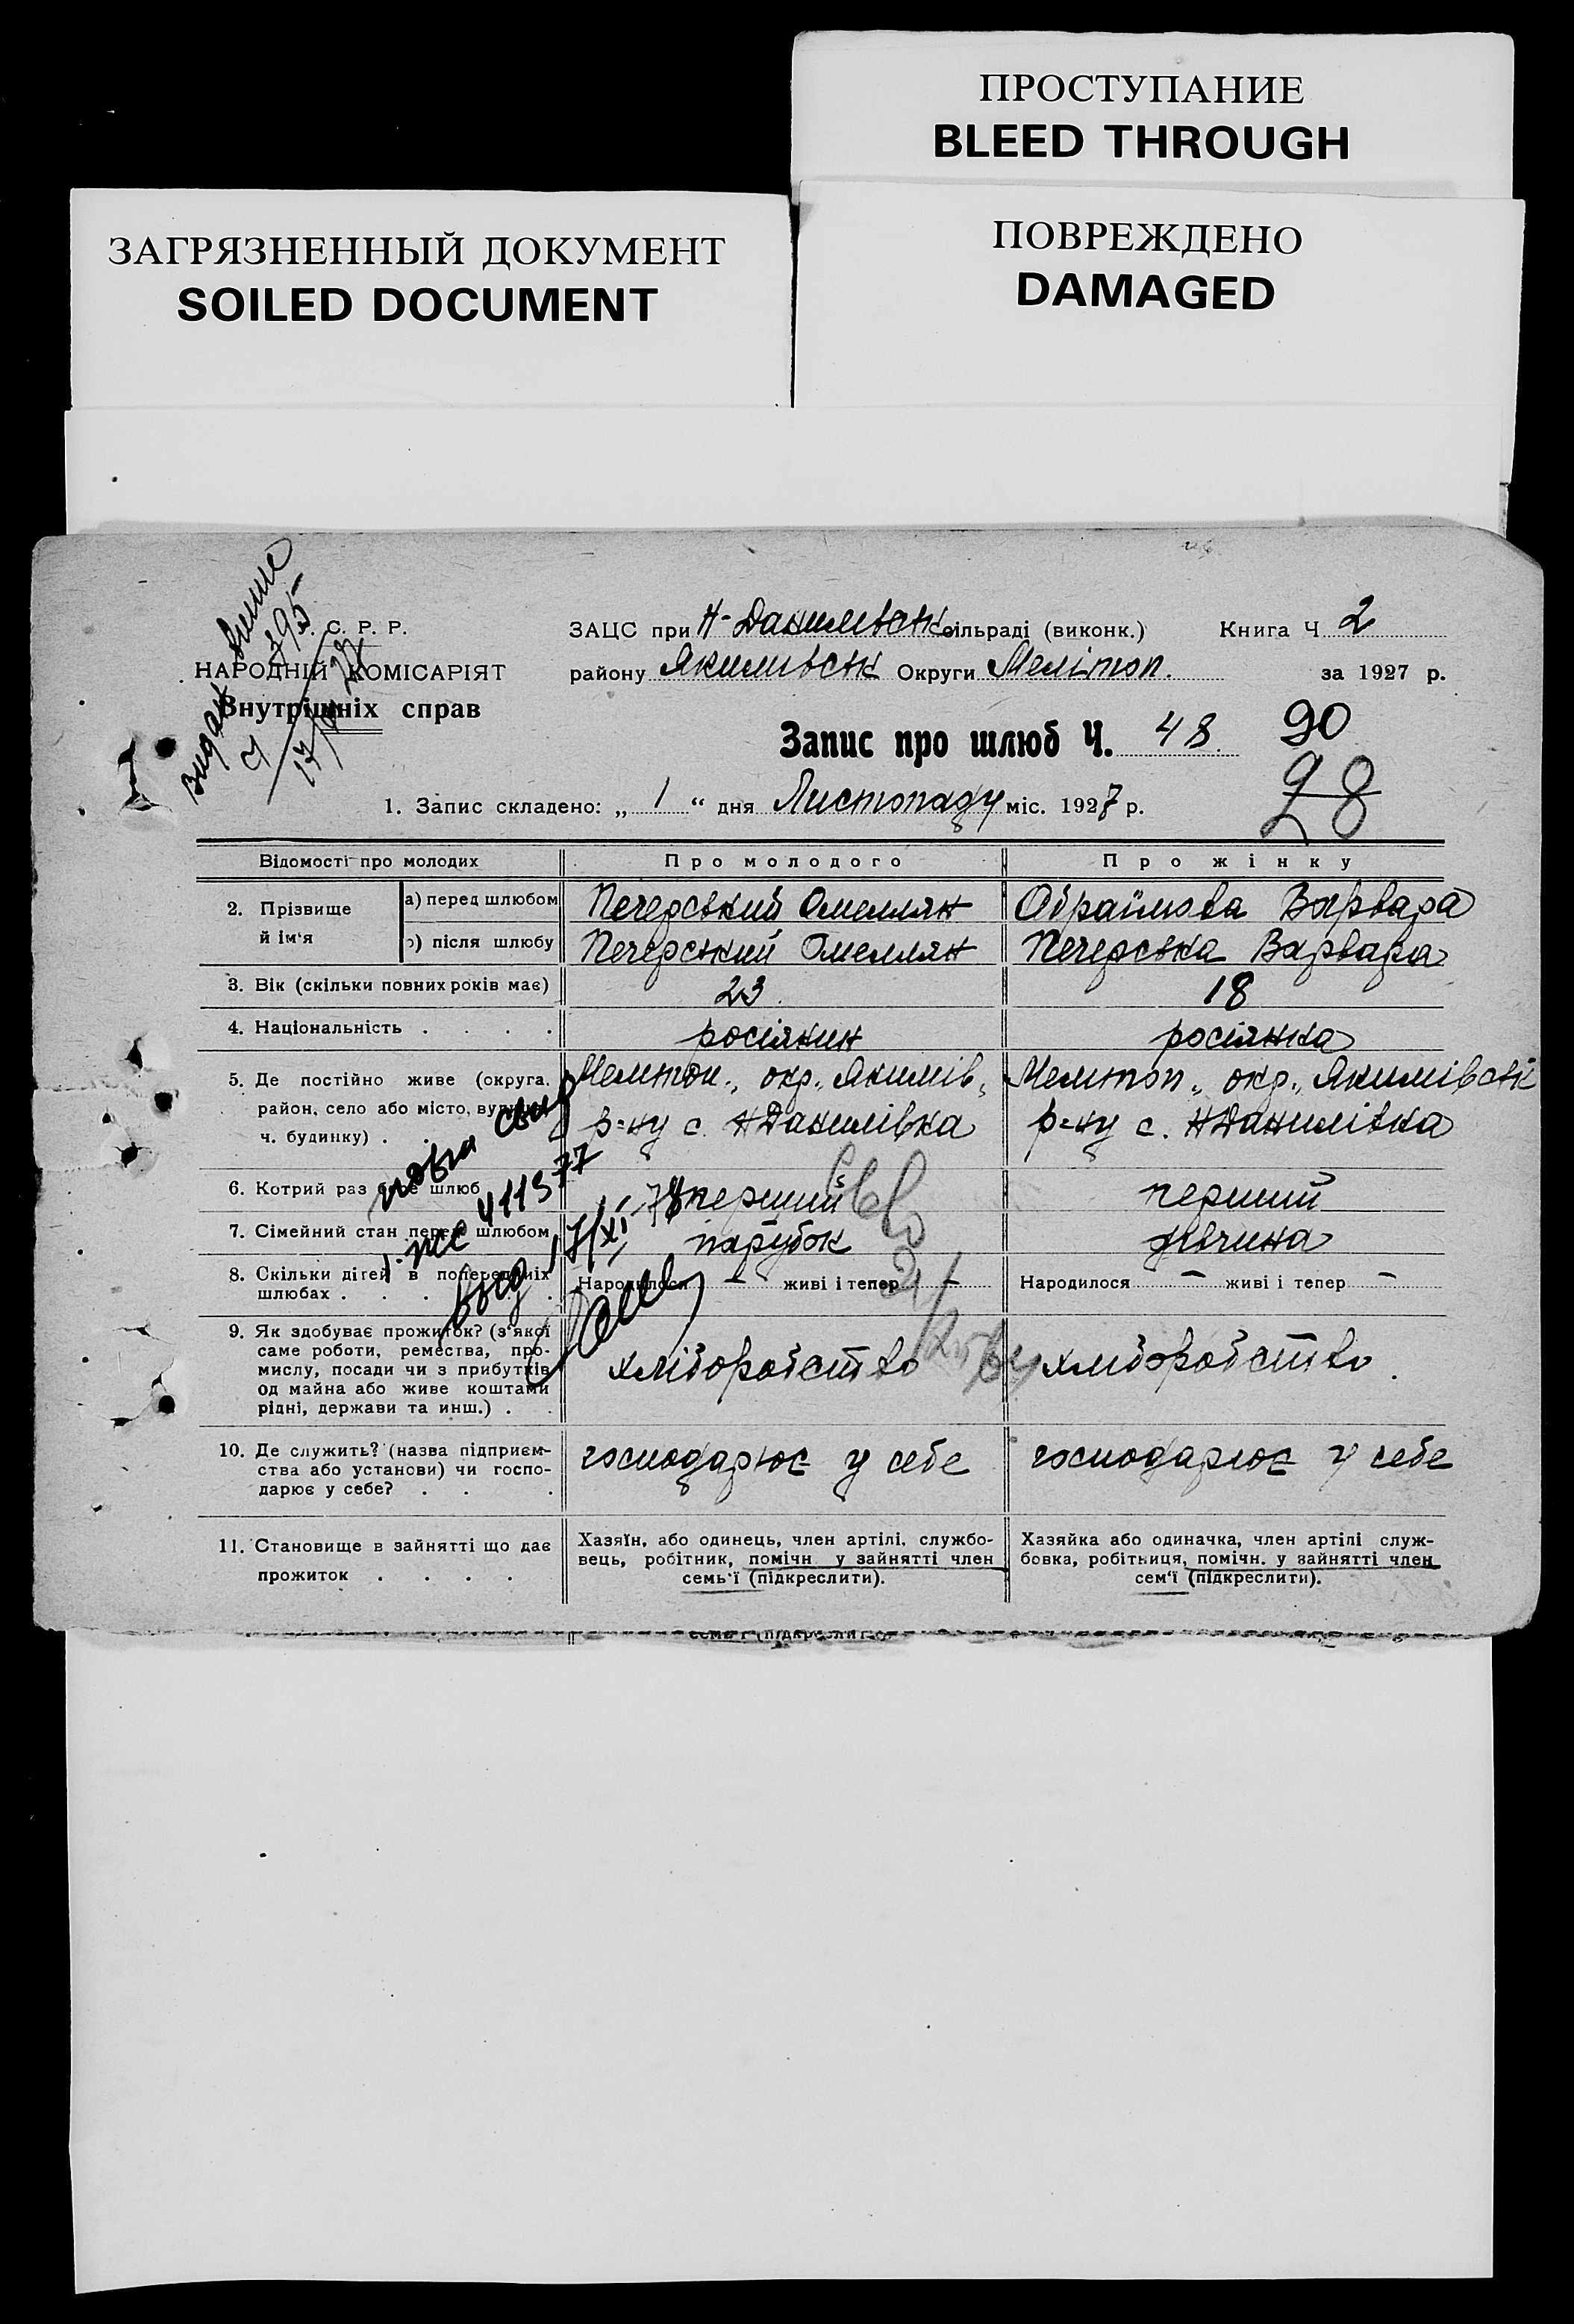 ПРОСТУПАНИЕ
BLEED THROUGH
ЗАГРЯЗНЕННЫЙ ДОКУМЕНТ
SOILED DOCUMENT
ПОВРЕЖДЕНО
DAMAGED
С. Р. Р.
НАРОДНІЙ КОМІСАРІЯТ
Внутрішніх справ
ЗАЦС при Н-Данилівськ сільраді (виконк.) Книга Ч 2
району Якимівськ Округи Мелітоп. за 1927 р.
Запис про шлюб Ч. 48. 90
28
1. Запис складено: „ 1 “ дня Листопаду міс. 1927 р.
Відомості про молодих Про молодого Про жінку
2. Прізвище й ім'я
а) перед шлюбом Печерський Омеллян Обраїмова Варвара
після шлюбу Печерський Омеллян Печерська Варвара
3. Вік (скільки повних років має) 23 18
4. Національність . . . . росіянин росіянка
5. Де постійно живе (округа, Мелітоп., окр., Якимів, Мелітоп., окр., Якимівськ
район, село або місто, р-ну с. НДанилівка р-ну с. НДанилівка
ч. будинку) .
6. Котрий раз бере шлюб перший перший
7. Сімейний стан перед шлюбом парубок дівчина
8. Скільки дітей в попередніх Народилося — живі і тепер — Народилося — живі і тепер —
шлюбах . . . .
9. Як здобуває прожиток? (з'якої
саме роботи, ремества, про-
мислу, посади чи з прибутків хліборобство хліборобство.
од майна або живе коштами
рідні, держави та инш.) .
10. Де служить? (назва підприєм- господарює у себе господарює у себе
ства або установи) чи госпо-
дарює у себе? . . .
11. Становище в зайнятті що дає
прожиток . . . .
Хазяїн, або одинець, член артілі, службо-
вець, робітник, помічн у зайнятті член
семь'ї (підкреслити).
Хазяйка або одиначка, член артілі служ-
бовка, робітниця, помічн. у зайнятті член
сем'ї (підкреслити).